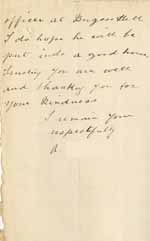 officer at Burgess Hill
I do hope he will be
put into a good home
Trusting you are well
and thanking you for
your kindness
I remain your
respectfully